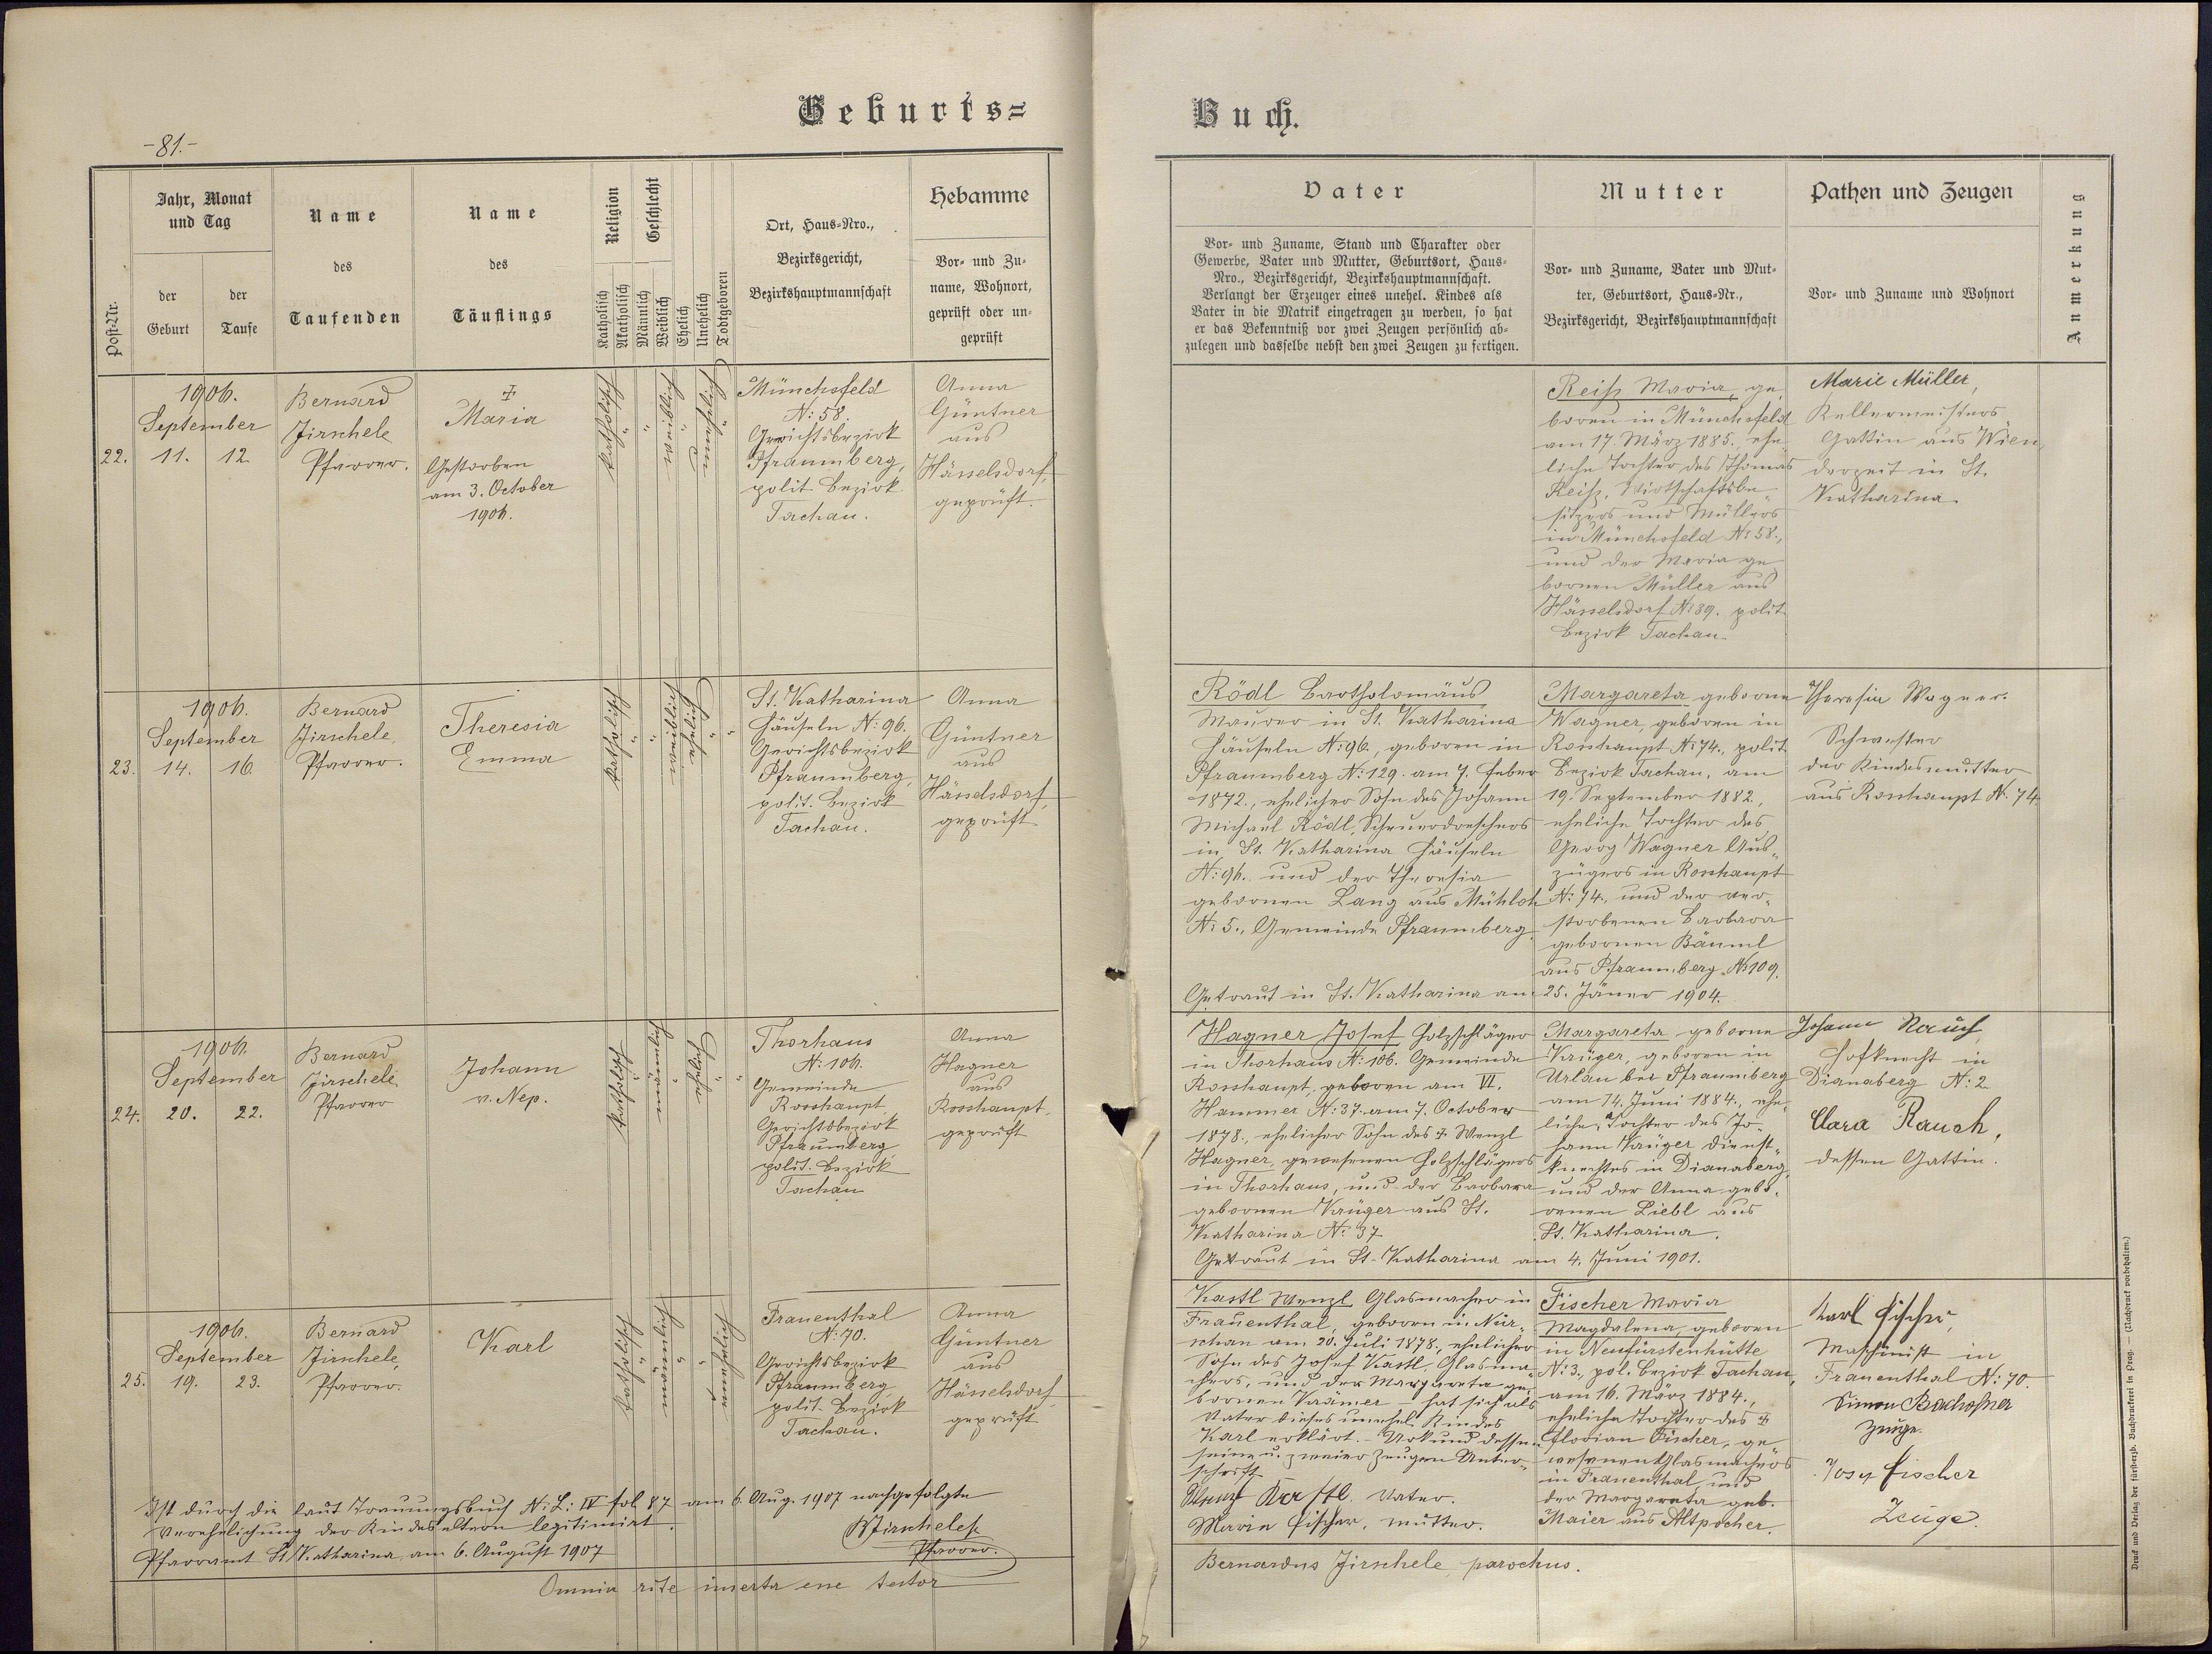 Geburts=
Buch.
-81.-
Post-Nr.
Jahr, Monat
und Tag
der
Geburt
der
Taufe
Name
des
Taufenden
Name
des
Täuflings
Religion
Katholisch
Akatholisch
Geschlecht
Männlich
Weiblich
Ehelich
Unehelich
Todtgeboren
Ort, Haus-Nro.,
Bezirksgericht,
Bezirkshauptmannschaft
Hebamme
Vor- und Zu-
name, Wohnort,
geprüft oder un-
geprüft
Vater
Vor- und Zuname, Stand und Charakter oder
Gewerbe, Vater und Mutter, Geburtsort, Haus-
Nro., Bezirksgericht, Bezirkshauptmannschaft.
Verlangt der Erzeuger eines unehel. Kindes als
Vater in die Matrik eingetragen zu werden, so hat
er das Bekenntniß vor zwei Zeugen persönlich ab-
zulegen und dasselbe nebst den zwei Zeugen zu fertigen.
Mutter
Vor- und Zuname, Vater und Mut-
ter, Geburtsort, Haus-Nr.,
Bezirksgericht, Bezirkshauptmannschaft
Pathen und Zeugen
Vor- und Zuname und Wohnort
Anmerkung
22.
1906.
September
11. 12.
Bernard
Jirschele
Pfarrer.
‡
Maria
Gestorben
am 3. October
1906.
katholisch
"
"
weiblich
"
unehelich
"
Münchsfeld
N: 58.
Gerichtsbezirk
Pfraumberg,
polit. Bezirk
Tachau.
Anna
Güntner
aus
Hässelsdorf,
geprüft.
Reiß Maria, ge-
boren in Münchsfeld
am 17. März 1885. ehe-
liche Tochter des Thomas
Reiß, Wirtschaftsbe-
sitzers und Müllers
in Münchsfeld N: 58.,
und der Maria ge-
bornen Müller aus
Hässelsdorf N: 39. polit.
Bezirk Tachau.
Marie Müller,
Kellermeisters
Gattin aus Wien,
derzeit in St.
Katharina.
23.
1906.
September
14. 16.
Bernard
Jirschele,
Pfarrer.
Theresia
Emma
katholisch
"
"
weiblich
ehelich
"
"
St. Katharina
Häuseln N: 96.
Gerichtsbezirk
Pfraumberg,
polit. Bezirk
Tachau.
Anna
Güntner
aus
Hässelsdorf,
geprüft
Rödl Bartholomäus
Maurer in St. Katharina
Häuseln N: 96., geboren in
Pfraumberg N: 129. am 7. Feber
1872., ehelicher Sohn des Johann
Michael Rödl, Scheuerdreschers
in St. Katharina Häuseln
N: 96. und der Theresia
gebornen Lang aus Mühloh
N: 5., Gemeinde Pfraumberg.
Margareta geborne
Wagner, geboren in
Rosshaupt N: 74., polit.
Bezirk Tachau, am
19. September 1882,
eheliche Tochter des
Georg Wagner Aus-
zügers in Rosshaupt
N: 74., und der ver-
storbenen Barbara
gebornen Bäuml
aus Pfraumberg N: 109.
Getraut in St. Katharina am 25. Jäner 1904.
Theresia Wagner.
Schwester
der Kindesmutter
aus Rosshaupt N: 74.
24.
1906.
September
20. 22.
Bernard
Jirschele
Pfarrer
Johann
v. Nep.
katholisch
"
männlich
"
ehelich
"
"
Thorhaus
N: 106.
Gemeinde
Rosshaupt
Gerichtsbezirk
Pfraumberg
polit. Bezirk
Tachau
Anna
Hagner
aus
Rosshaupt.
geprüft
Hagner Josef Holzschläger
in Thorhaus N: 106. Gemeinde
Rosshaupt, geboren am VI.
Hammer N: 37. am 7. October
1878., ehelicher Sohn des ‡ Wenzl
Hagner, gewesenen Holzschlägers
in Thorhaus, und der Barbara
gebornen Krüger aus St.
Katharina N: 37
Margareta geborne
Krüger, geboren in
Urlau bei Pfraumberg
am 14. Juni 1884., ehe-
liche Tochter des Jo-
hann Krüger Dienst-
knechtes in Dianaberg,
und der Anna gebo-
renen Liebl aus
St. Katharina.
Getraut in St. Katharina am 4. Juni 1901.
Johann Rauch,
Hofknecht in
Dianaberg N: 2
Clara Rauch,
dessen Gattin.
25.
1906.
September
19. 23.
Bernard
Jirschele,
Pfarrer.
Karl
katholisch
"
männlich
"
"
unehelich
Frauenthal
N: 70.
Gerichtsbezirk
Pfraumberg
polit. Bezirk
Tachau.
Anna
Güntner
aus
Hässelsdorf
geprüft
Kastl Wenzl Glasmacher in
Frauenthal, geboren in Nür-
schan am 20. Juli 1878., ehelicher
Sohn des Josef Kastl, Glasma-
chers, und der Margareta ge-
bornen Krämer – hat sich als
Vater dieses unehel. Kindes
Karl erklärt. – Urkund dessen
seine u. zweier Zeugen Unter-
schrift
Wenzl Kastl. Vater.
Maria Fischer, Mutter.
Fischer Maria
Magdalena, geboren
in Neufürstenhütte
N: 3., pol. Bezirk Tachau,
am 16. März 1884.,
eheliche Tochter des ‡
Florian Fischer, ge-
wesenen Glasmachers
in Frauenthal, und
der Margareta geb.
Maier aus Altpocher.
Karl Fischer,
Maschinist in
Frauenthal N: 70.
Simon Bachofner
Zeuge.
Josef Fischer
Zeuge.
Ist durch die laut Trauungsbuch N: L: IV fol 87 am 6. Aug. 1907 nachgefolgte
Verehelichung der Kindeseltern legitimirt.
Pfarramt St. Katharina, am 6. August 1907
BJirschele
Pfarrer.
Omnia rite inserta esse testor
Bernardus Jirschele, parochus.
Druck und Verlag der fürsterzb. Buchdruckerei in Prag. — (Nachdruck vorbehalten.)